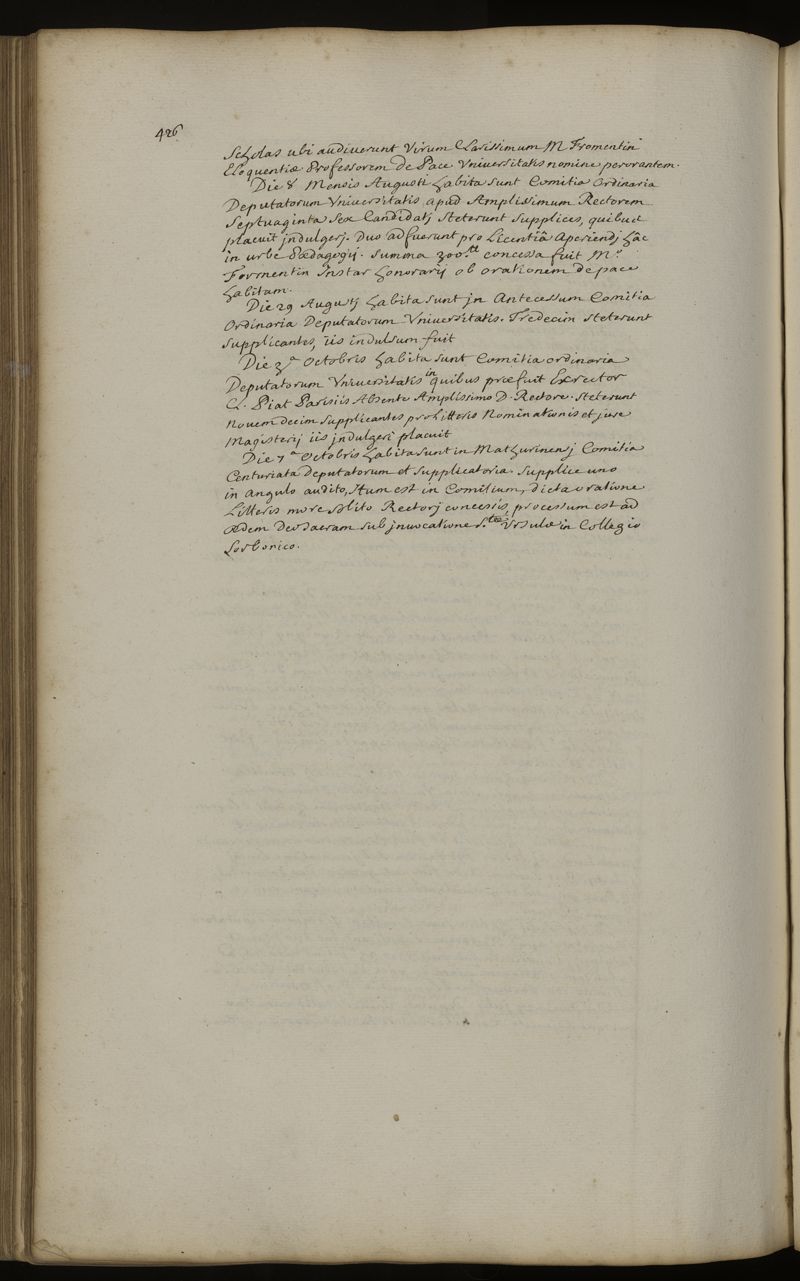 426
Scholas ubi audiverunt Virum Clarissimum M Fromentin
Eloquentiæ Professorem de Pace Vniversitatis nomine perorantem.
Die 8 Mensis Augusti habita sunt Comitia Ordinaria
Deputatorum Vniversitatis apud Amplissimum Rectorem
Septuaginta Sex Candidatj Steterunt Supplices, quibus
placuit jndulgerj. Duo adfuerunt pro Licentiâ Aperiendj hâc
in urbe Pædagogij. Summa 300.tt concessa fuit Mo.
Formentin Instar honorarij ob orationem de pace
habitam.
Die 29 Augustj habita sunt jn Antecessum Comitia
Ordinaria Deputatorum Vniversitatis. Tredecim Steterunt
Supplicantes, iis indulsum fuit
Die 3a Octobris habita sunt Comitia ordinaria
Deputatorum Vniversitatis in quibus præfuit Exrector
Cl. Piat Parisiis Absente Amplissimo D. Rectore. Steterunt
Novemdecim Supplicantes pro Litteris Nominationis et jure
Magisterij iis jndulgeri placuit
Die 7a Octobris habita sunt in Mathurinensj Comitia
Centuriata Deputatorum et Supplicatoria. Supplice uno
in Angulo audito, Itum est in Comitium, dicta oratione
Litteris more solito Rectorj concessis, processum est ad
Ædem Deo Sacram sub jnvocatione S.tæ Vrsulæ in Collegio
Sorbonico.